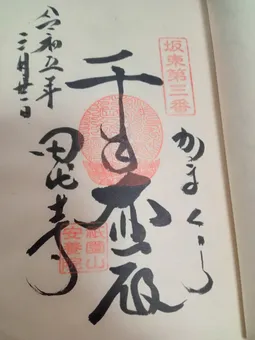 坂東第三番
かまくら
千手殿
祇園山
安養院
田代寺
令和五年
三月廿一日